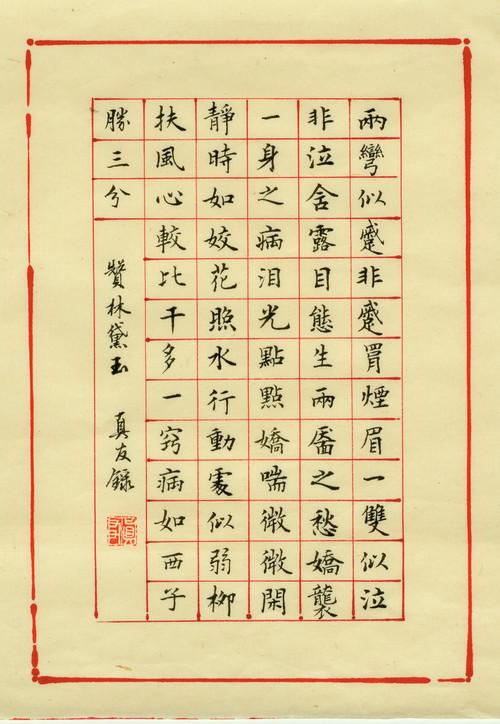 兩彎似蹙非蹙罥煙眉一雙似泣
非泣舍露目態生兩靨之愁嬌襲
一身之病泪光點點嬌喘微微閑
靜時如姣花照水行動處似弱柳
扶風心較比干多一竅病如西子
勝三兮
贊林黛玉 真友錄